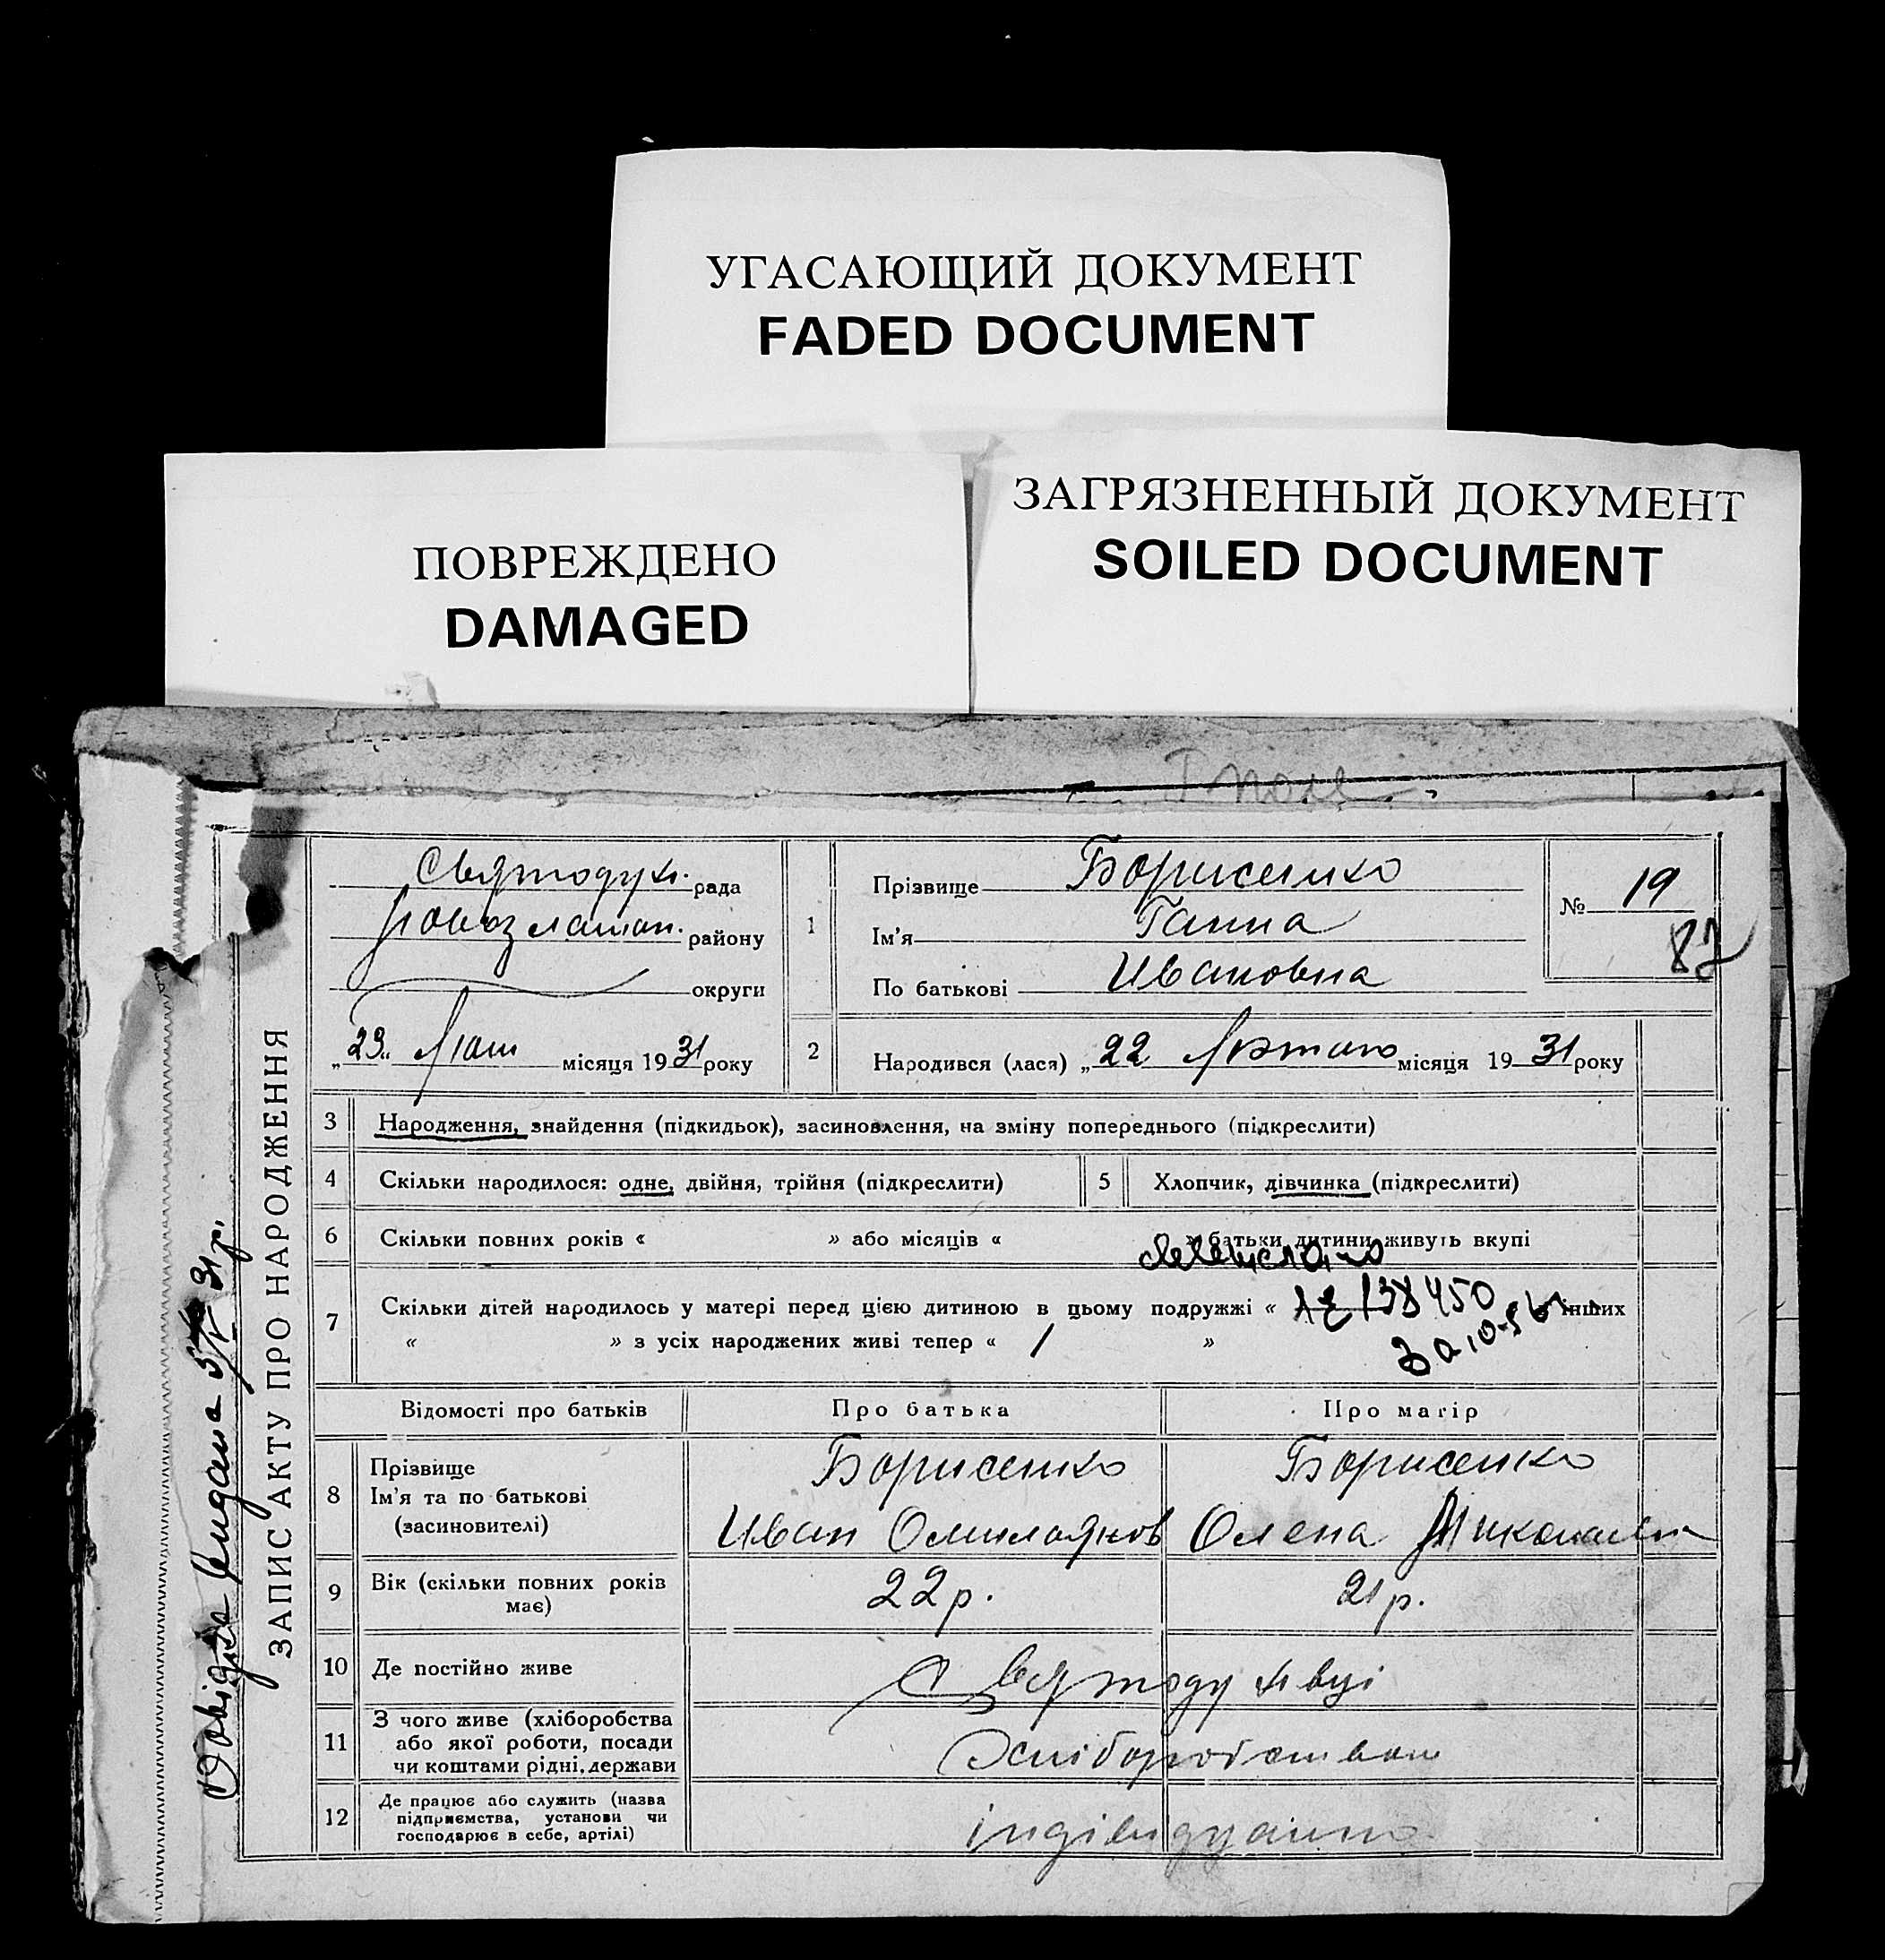 УГАСАЮЩИЙ ДОКУМЕНТ
FADED DOCUMENT
ПОВРЕЖДЕНО
DAMAGED
ЗАГРЯЗНЕННЫЙ ДОКУМЕНТ
SOILED DOCUMENT
ЗАПИС АКТУ ПРО НАРОДЖЕННЯ
Довідка видана 31 р.
Святодух. рада
Новозлатоп. району
округи
„23„ Лют місяця 1931 року
1
Прізвище Борисенко
Ім'я Ганна
По батькові Ивановна
№ 19
87
2
Народився (лася) „22 Лютого місяця 1931 року
3 Народження, знайдення (підкидьок), засиновлення, на зміну попереднього (підкреслити)
4 Скільки народилося: одне, двійня, трійня (підкреслити)
5 Хлопчик, дівчинка (підкреслити)
6 Скільки повних років « » або місяців « » батьки дитини живуть вкупі
7 Скільки дітей народилось у матері перед цією дитиною в цьому подружжі « з інших
« » з усіх народжених живі тепер « 1 »
138450
Відомості про батьків Про батька Про матір
8 Прізвище Борисенко Борисенко
Ім'я та по батькові
(засиновителі) Иван Олена
9 Вік (скільки повних років
має) 22 р. 21 р.
10 Де постійно живе Святодухівці
11 З чого живе (хліборобства
або якої роботи, посади
чи коштами рідні, держави
Хліборобством
12 Де працює або служить (назва
підприємства, установи чи
господарює в себе, артілі)
індівидуально